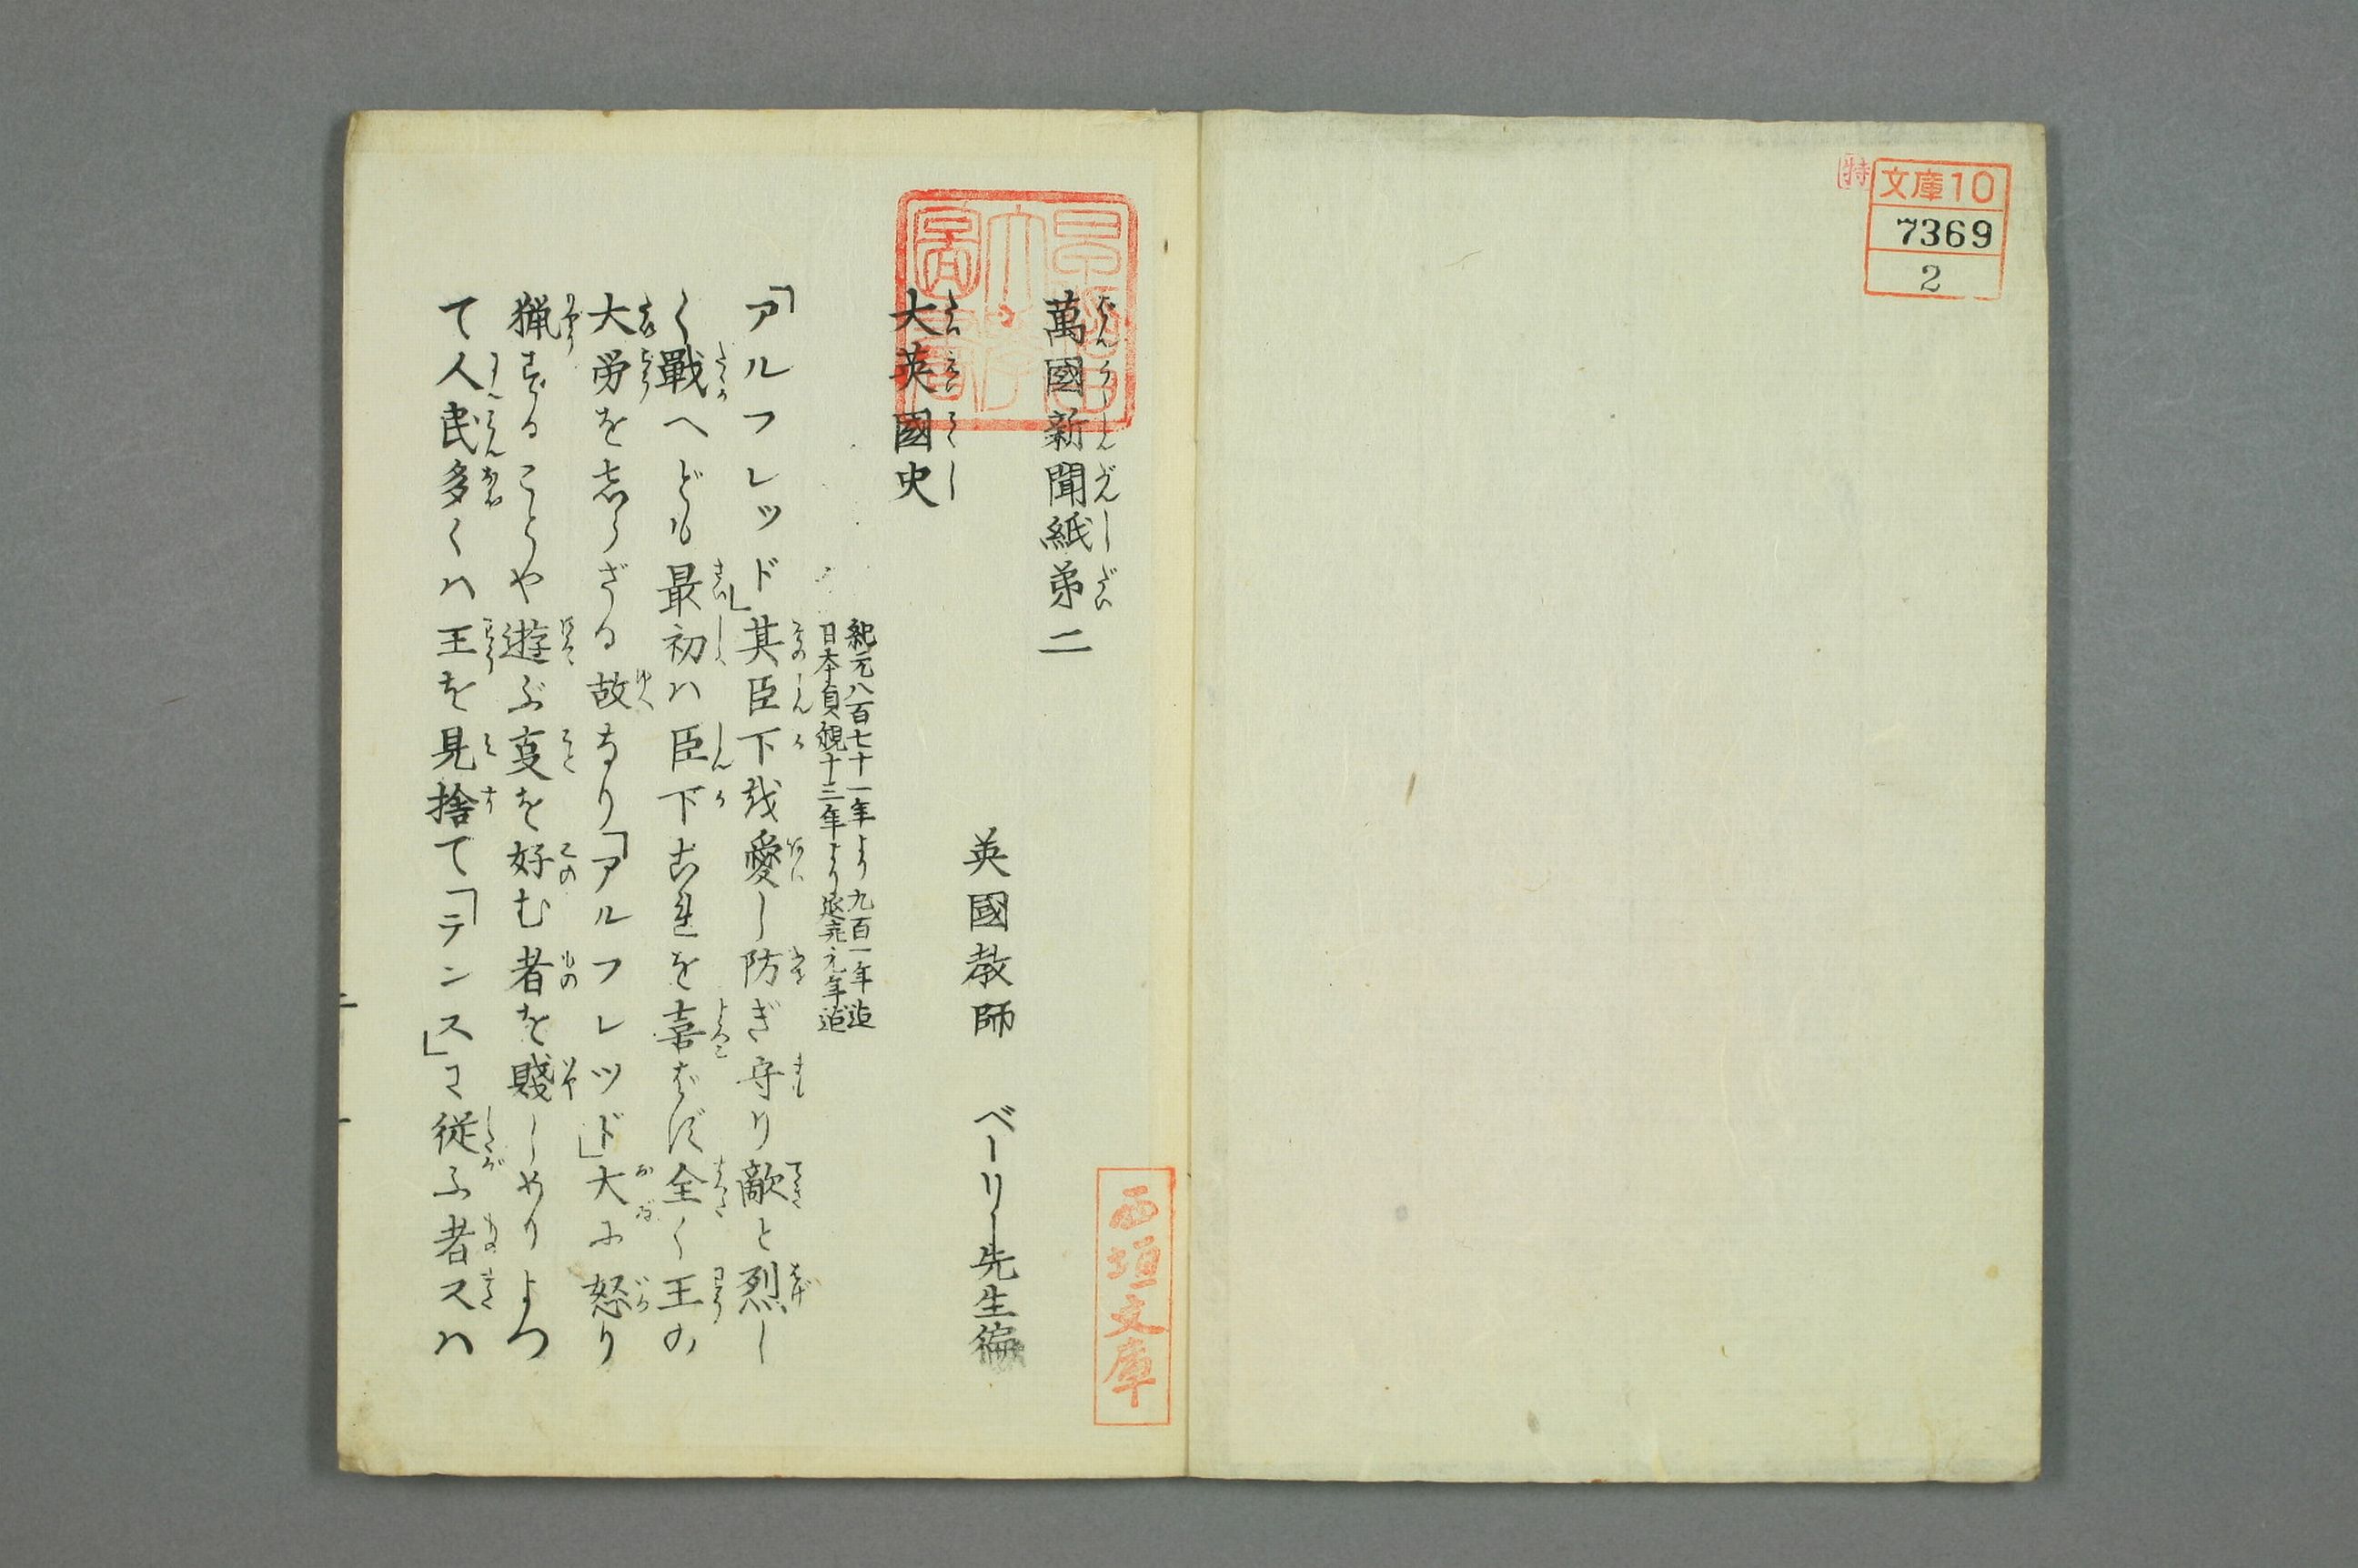 特
文庫10
7369
2
萬國新聞紙第二
英國教師　ベーリー先生編
大英國史
紀元八百七十一年より九百一年迠
日本貞観十三年より延喜元年迠
「アルフレッド」其臣下越愛し防ぎ守り敵と烈し
く戰へども最初ハ臣下古連を喜ばず全く王の
大労を志らざる故なり「アルフレッド」大に怒り
猟することや遊ぶ㕝を好む者を賤しめりよつ
て人民多くハ王を見捨て「デンス」に従ふ者又ハ
西垣文庫